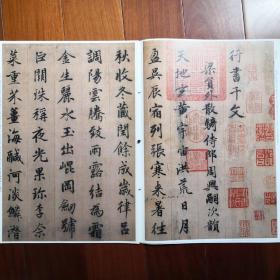 行書千文
梁員外散騎侍郎周興嗣次韻
天地玄黃宇宙洪荒日月
盈昃辰宿列張寒来暑往
秋收冬藏閏餘成歲律呂
調陽雲騰致雨露結為霜
金生麗水玉出崐岡劒號
巨闕珠稱夜光果珎李柰
菜重芥薑海鹹河淡鱗潛